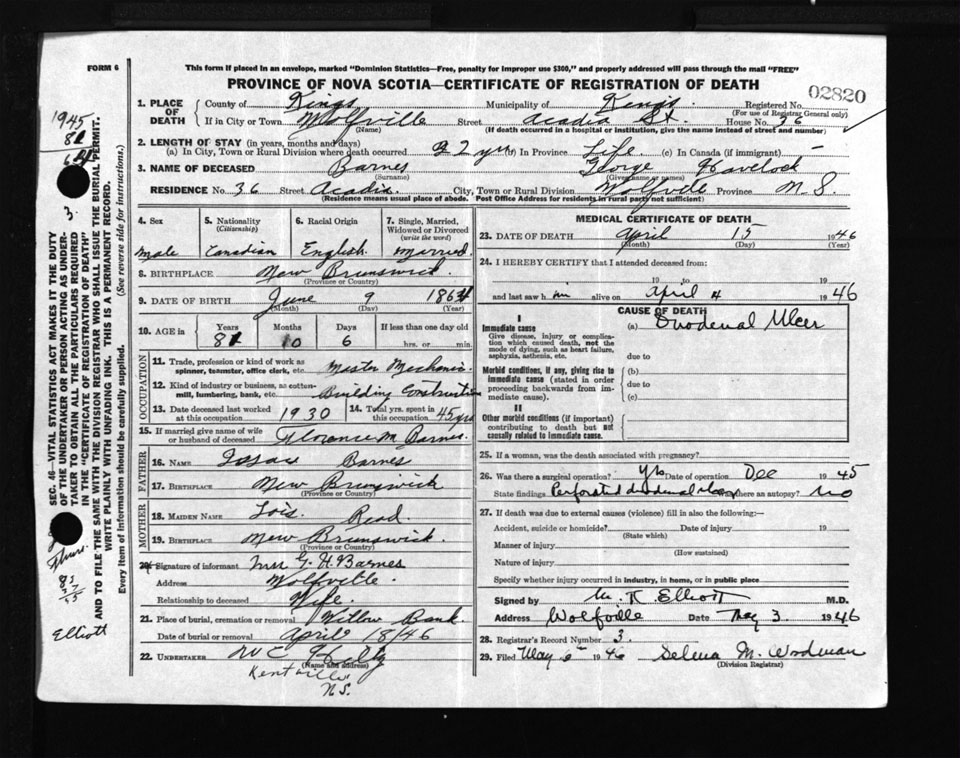 FORM 6
This form if placed in an envelope, marked "Dominion Statistics—Free, penalty for improper use $300," and properly addressed will pass through the mail "FREE"
PROVINCE OF NOVA SCOTIA—CERTIFICATE OF REGISTRATION OF DEATH
02820
1. PLACE OF DEATH
County of Kings Municipality of Kings Registered No.
(For use of Registrar General only)
If in City or Town Wolfville Street Acadia St. House No. 36
(Name) (If death occurred in a hospital or institution, give the name instead of street and number)
2. LENGTH OF STAY (in years, months and days)
(a) In City, Town or Rural Division where death occurred 22 yrs (b) in Province Life (c) In Canada (if immigrant) —
3. NAME OF DECEASED Barnes George Havelock
(Surname) (Given name or names)
RESIDENCE No. 36 Street Acadia City, Town or Rural Division Wolfville Province N S
(Residence means usual place of abode. Post Office Address for residents in rural parts not sufficient)
4. Sex
Male
5. Nationality
(Citizenship)
Canadian
6. Racial Origin
English
7. Single, Married, Widowed or Divorced
(write the word)
Married
8. BIRTHPLACE New Brunswick
(Province or Country)
9. DATE OF BIRTH June 9 1864
(Month) (Day) (Year)
10. AGE in Years Months Days If less than one day old
81 10 6 hrs. or min.
OCCUPATION
11. Trade, profession or kind of work as spinner, teamster, office clerk, etc. Master Mechanic
12. Kind of industry or business, as cotton-mill, lumbering, bank, etc. Building Construction
13. Date deceased last worked at this occupation 1930
14. Total yrs. spent in this occupation 45 yrs
15. If married give name of wife or husband of deceased Florence M Barnes
FATHER
16. NAME Isaac Barnes
17. BIRTHPLACE New Brunswick
(Province or Country)
MOTHER
18. MAIDEN NAME Lois Read
19. BIRTHPLACE New Brunswick
(Province or Country)
20. Signature of informant Mrs G. H. Barnes
Address Wolfville
Relationship to deceased Wife
21. Place of burial, cremation or removal Willow Bank
Date of burial or removal April 18/46
22. UNDERTAKER
(Name and address)
Kentville
N.S.
MEDICAL CERTIFICATE OF DEATH
23. DATE OF DEATH April 15 1946
(Month) (Day) (Year)
24. I HEREBY CERTIFY that I attended deceased from:
19 to 19
and last saw him alive on April 4 1946
CAUSE OF DEATH
I
Immediate cause
Give disease, injury or complication which caused death, not the mode of dying, such as heart failure, asphyxia, asthenia, etc.
(a) Duodenal Ulcer
due to
Morbid conditions, if any, giving rise to immediate cause (stated in order proceeding backwards from immediate cause).
(b)
due to
(c)
II
Other morbid conditions (if important) contributing to death but not causally related to immediate cause.
25. If a woman, was the death associated with pregnancy?
26. Was there a surgical operation? Yes Date of operation Dec 1945
State findings Perforated duodenal ulcer Was there an autopsy? No
27. If death was due to external causes (violence) fill in also the following:—
Accident, suicide or homicide? Date of injury 19
(State which)
Manner of injury
(How sustained)
Nature of injury
Specify whether injury occurred in industry, in home, or in public place
Signed by M. R. Elliott M.D.
Address Wolfville Date May 3 1946
28. Registrar's Record Number 3.
29. Filed May 6 1946 Selena M. Woodman
(Division Registrar)
SEC. 46—VITAL STATISTICS ACT MAKES IT THE DUTY
OF THE UNDERTAKER OR PERSON ACTING AS UNDER-
TAKER TO OBTAIN ALL THE PARTICULARS REQUIRED
IN THE "CERTIFICATE OF REGISTRATION OF DEATH"
AND TO FILE THE SAME WITH THE DIVISION REGISTRAR WHO SHALL ISSUE THE BURIAL PERMIT.
WRITE PLAINLY WITH UNFADING INK. THIS IS A PERMANENT RECORD.
Every item of information should be carefully supplied. (See reverse side for instructions.)
1945
81
3.
Elliott